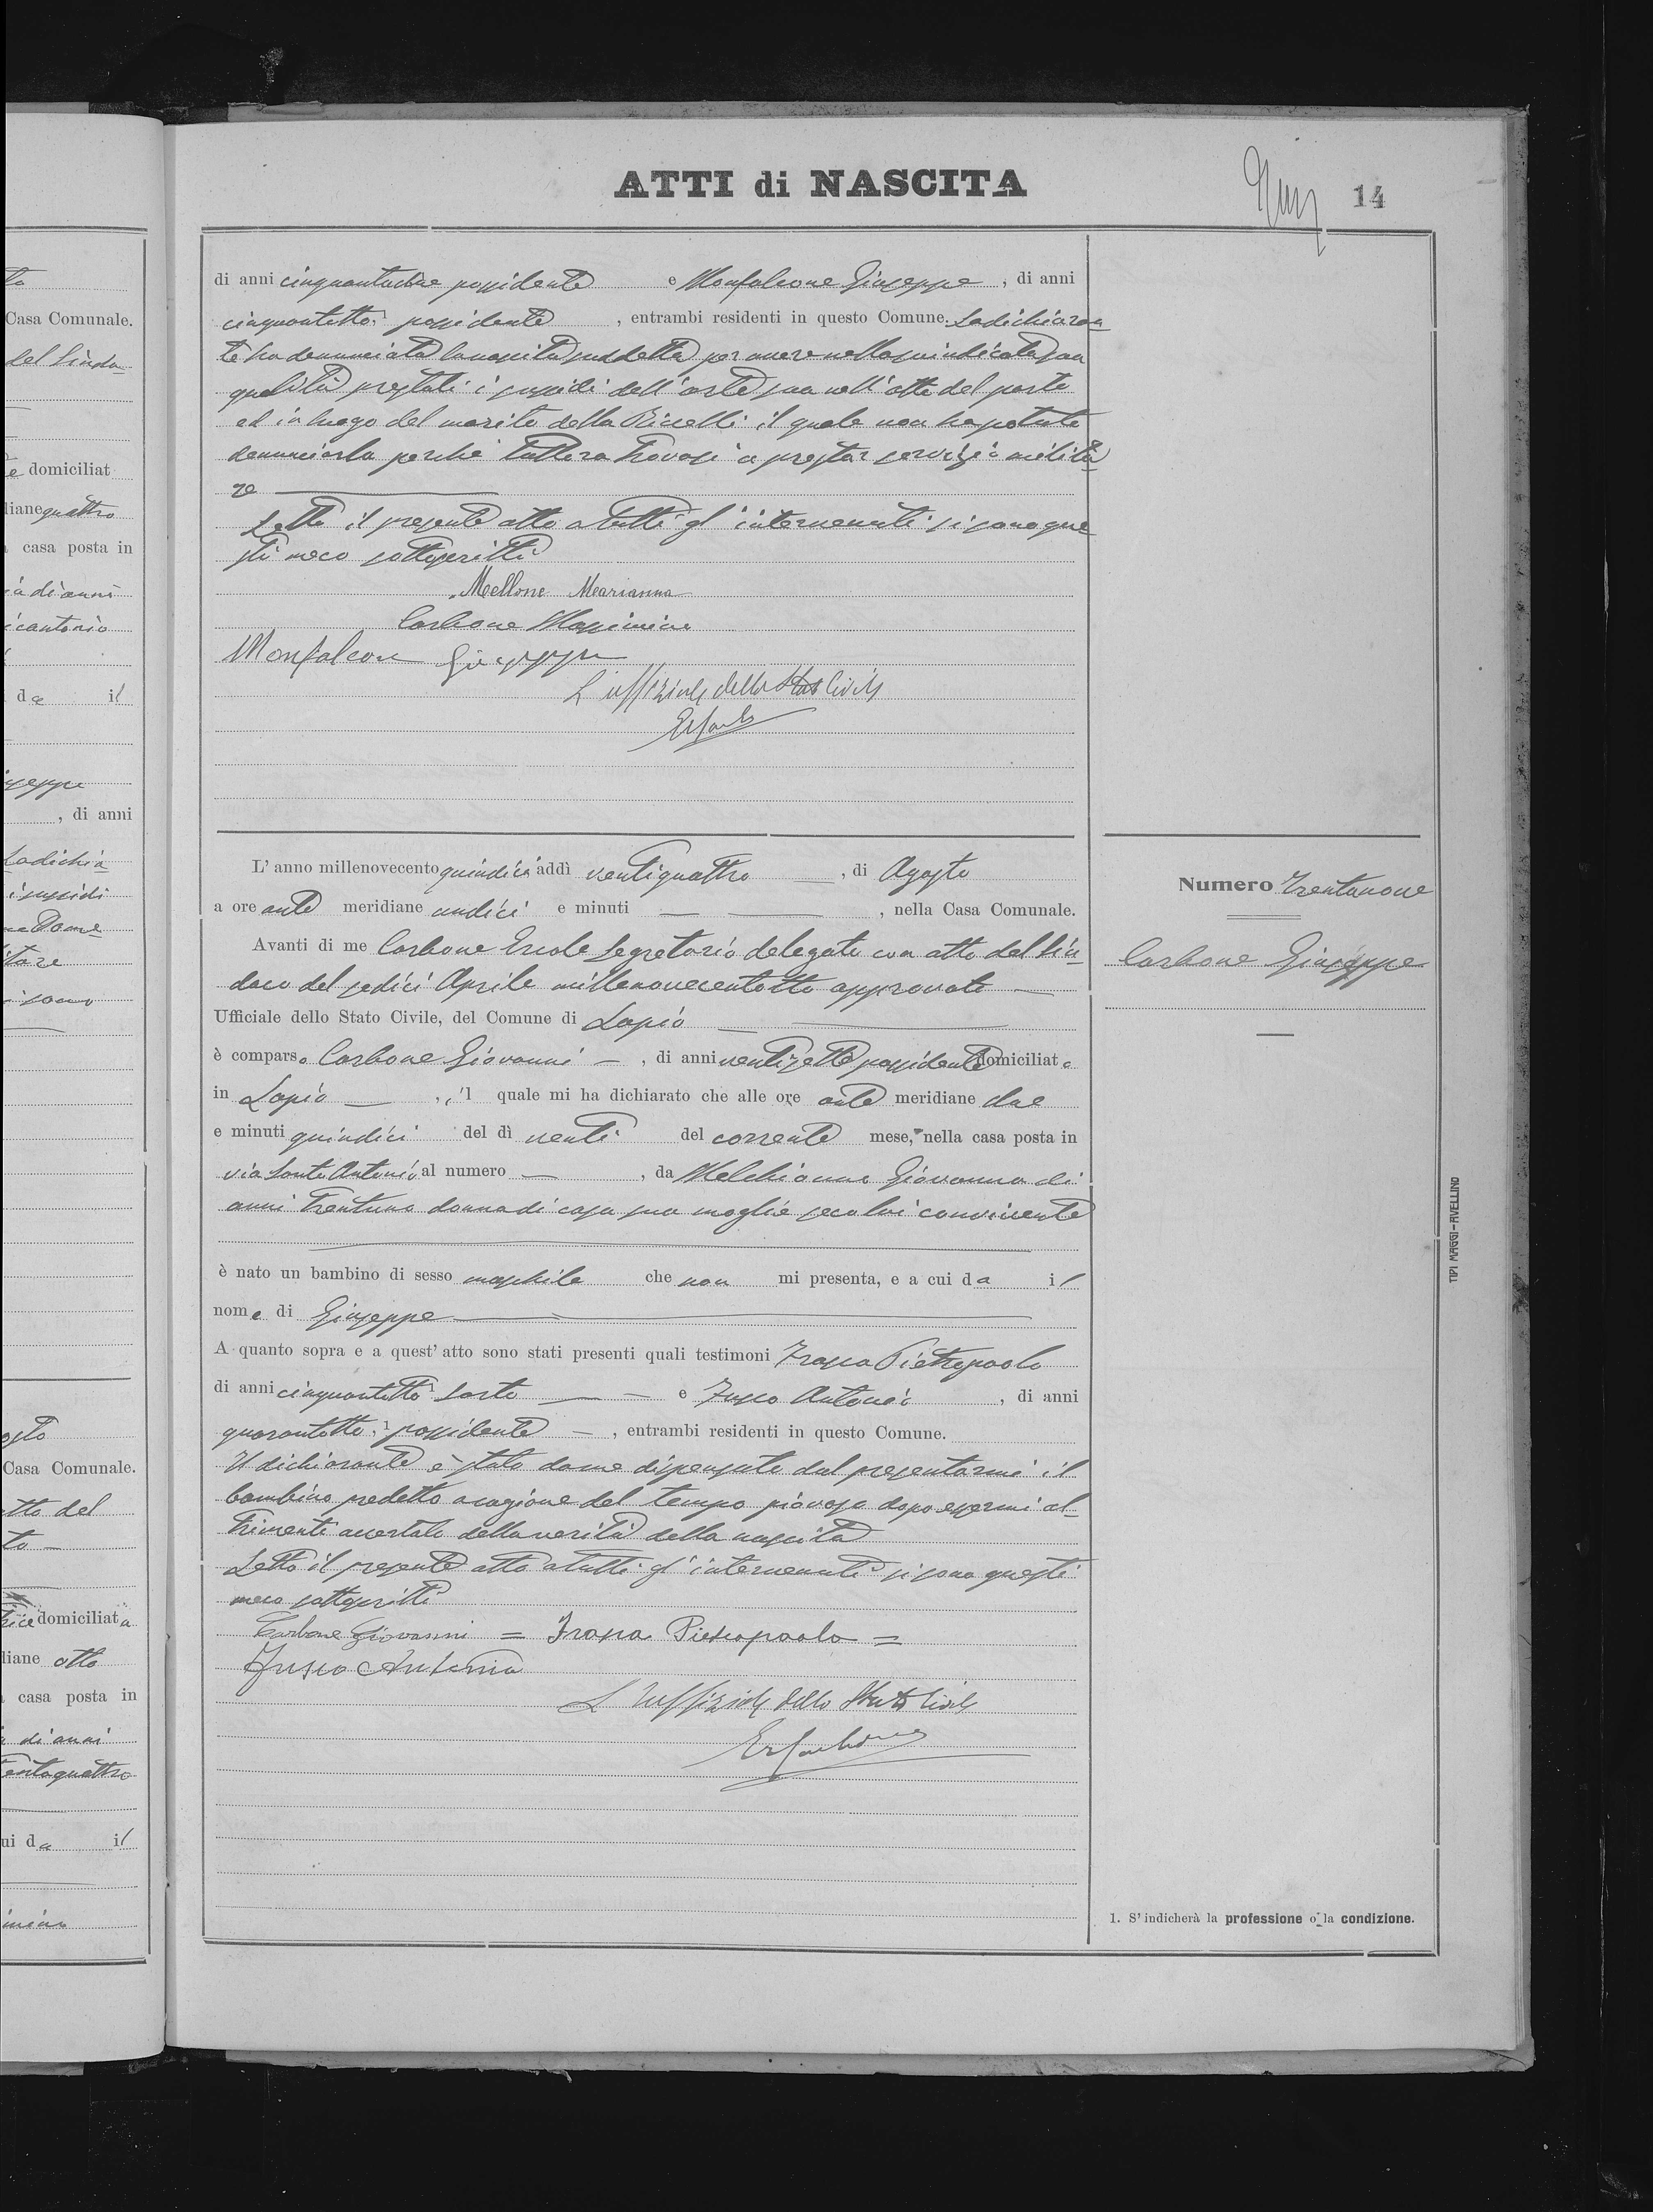 ATTI di NASCITA
14
di anni cinquantadue possidente e Monfalcone Giuseppe, di anni
cinquantotto, possidente, entrambi residenti in questo Comune. La dichiaran
te ha denunciata la nascita suddetta per avere nella suindicata sua
qualità prestati i sussidi dell'arte sua nell'atto del parto
ed in luogo del marito della Ricelli il quale non ha potuto
denunciarla perchè tuttora trovasi a prestar servizio milita
re
Letto il presente atto a tutti gl'intervenuti si sono que
sti meco sottoscritti
Mellone Marianna
Carbone Massimino
Monfalcone Giuseppe
L'uffiziale dello Stato Civile
L'anno millenovecento quindici addì ventiquattro, di Agosto
a ore ante meridiane undici e minuti —, nella Casa Comunale.
Avanti di me Carbone Ercole Segretario delegato con atto del Sin-
daco del sedici Aprile millenovecentotto approvato —
Ufficiale dello Stato Civile, del Comune di Lapio
è comparso Carbone Giovanni —, di anni ventisette possidente domiciliato
in Lapio —, il quale mi ha dichiarato che alle ore ante meridiane due
e minuti quindici del dì venti del corrente mese, nella casa posta in
via Santo Antonio al numero —, da Melchionna Giovanna di
anni trentuno donna di casa sua moglie seco lui convivente
è nato un bambino di sesso maschile che non mi presenta, e a cui da il
nome di Giuseppe
A quanto sopra e a quest'atto sono stati presenti quali testimoni Trosa Pietropaolo
di anni cinquantotto sarto — e Fusco Antonio, di anni
quarantotto, possidente —, entrambi residenti in questo Comune.
Il dichiarante è stato da me dispensato dal presentarmi il
bambino predetto a cagione del tempo piovoso dopo essermi al-
trimenti accertato della verità della nascita
Letto il presente atto a tutti gl'intervenuti si sono questi
meco sottoscritti
Carbone Giovanni = Pietropaolo =
Fusco Antonio
L'uffiziale dello Stato Civile
Numero Trentanove
Carbone Giuseppe
1. S'indicherà la professione o la condizione.
TIPI MAGGI-AVELLINO
Casa Comunale.
del Sinda-
domiciliat
diane quattro
casa posta in
di anni
da il
, di anni
La dichia
i sussidi
Casa Comunale.
atto del
domiciliata
diane otto
casa posta in
di anni
ui da il